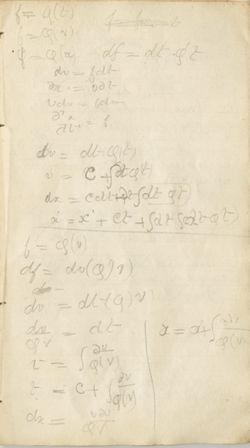 f = φ(t)
f = φ(v)
f = φ(x) df = dt φ't
dv = fdt
∂x = v∂t
vdv = fdx
∂²x/∂t² = f
dv = dt φ(t)
v = C + ∫dt φt
dx = Cdt + dt ∫dt φt
x = x' + Ct + ∫dt ∫dt φt
f = φ(v)
df = dv(φ'v)
dv = dt(φ)v
dv/φv = dt
t = ∫ ∂v/φ(v)
t = C + ∫ ∂v/φ(v)
x = x' + ∫ v∂v/φ(v)
dx = v∂v/φv